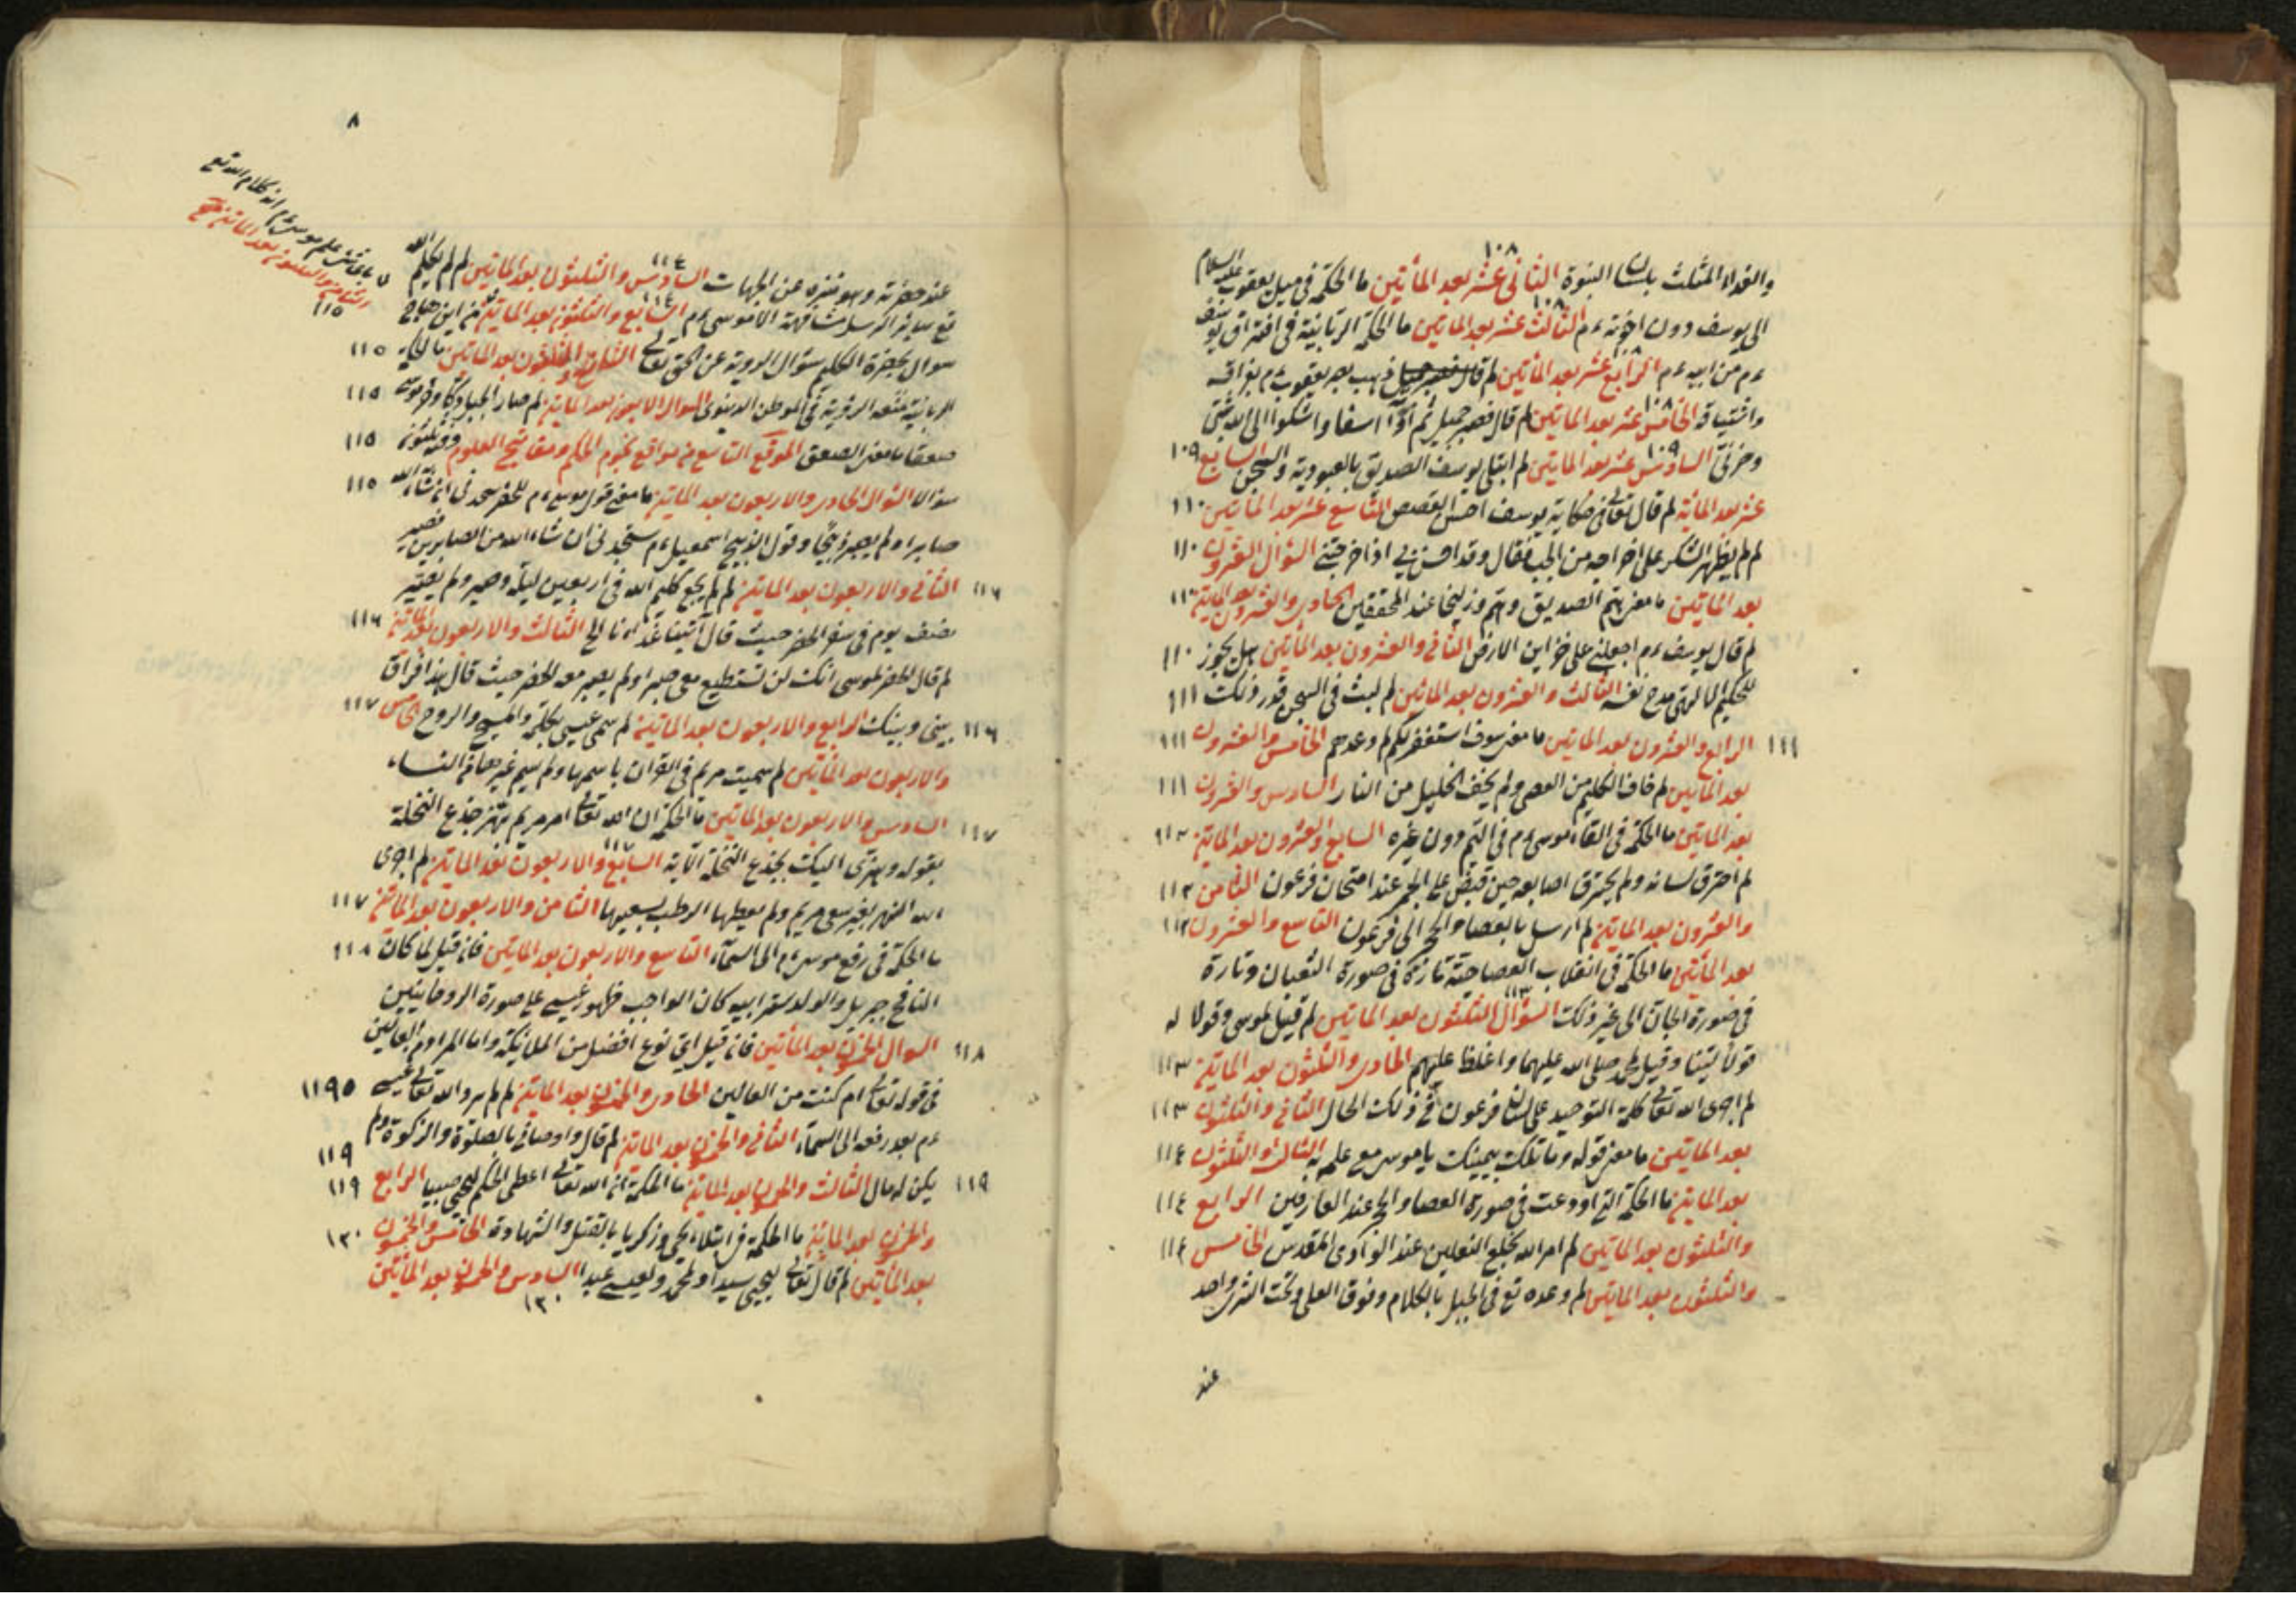 والغداء المثلث بلسان النبوة الثانى عشر بعد المأتين ما الحكمة فى ميل يعقوب عليه السلام ١٠٨
الى يوسف دون اخوته ءم الثالث عشر بعد الماتين ما الحكمة الربانية فى افتراق يوسف ١٠٨
ءم من ابيه ءم الرابع عشر بعد المأتين لم ذهب بصر يعقوب ءم بفراقه ١٠٨
واشتياقه الخامس عشر بعد الماتين لم قال فصبر جميل ثم اسفا واشكوا الى الله بثى ١٠٨
وحزنى السادس عشر بعد الماتين لم ابتلى يوسف الصديق بالعبودية والسجن السابع ١٠٩ ١٠٩
عشر بعد المائة لم قال تعالى فى حكاية يوسف احسن القصص التاسع عشر بعد المأتين ١١٠
لم لم يظهر الشكر على اخراجه من الجب فقال وقد احسن بى اذ اخرجنى السؤال العشرون ١١٠
بعد الماتين ما معنى هم الصديق وهم وزليخا عند المحققين الحادى والعشرون بعد الماية ١١٠
لم قال يوسف ءم اجعلنى على خزاين الارض الثانى والعشرون بعد المأتين هل يجوز ١١٠
للحكيم مدح نفسه الثالث والعشرون بعد الماتين لم لبث فى السجن قدر ذلك ١١١
١١١ الرابع والعشرون بعد الماتين ما معنى سوف استغفر لكم لم وعدهم الخامس والعشرون ١١١
بعد الماتين لم خاف الكليم من العصى ولم يخف الخليل من النار السادس والعشرون ١١١
بعد الماتين ما الحكمة فى القاء موسى ءم فى اليم دون غيره السابع والعشرون بعد الماية ١١٢
لم احترق لسانه ولم يحترق اصابعه حين قبض على الجمر عند امتحان فرعون الثامن ١١٢
والعشرون بعد الماتين لم ارسل بالعصا الى فرعون التاسع والعشرون ١١٢
بعد المأتين ما الحكمة فى انقلاب العصا حية تارة فى صورة الثعبان وتارة
فى صورة الجان الى غير ذلك السؤال الثلثون بعد الماتين لم قيل لموسى وقولا له ١١٣
قولا لينا وقيل لمحمد صلى الله عليهما واغلظ عليهم الحادى والثلثون بعد الماية ١١٣
لم اجرى الله تعالى كلمة التوحيد على لسان فرعون فى ذلك الحال الثانى والثلثون ١١٣
بعد الماتين ما معنى قوله وما تلك بيمينك يا موسى مع علمه به الثالث والثلثون ١١٤
بعد الماية ما الحكمة التى اودعت فى صورة العصا عند العارفين الرابع ١١٤
والثلثون بعد الماتين لم امر الله بخلع النعلين عند الوادى المقدس الخامس ١١٤
والثلثون بعد الماتين لم وعده تع فى الجبل بالكلام وفوق العلى وتحت الثرى واحد
عند
٨
باى شئ علم موسى ءم انه كلام الله تع
الثامن والثلثون بعد الماتين
١١٥
عند حضرته وهو منزه عن الجهات السادس والثلثون بعد الماتين لم لم يكلم الله ١١٤
تع ساير الرسل مشافهة الا موسى ءم السابع والثلثون بعد الماية من اين هاج ١١٤
سوال بحضرة الكليم سؤال الروية عن الحق تعالى التاسع والثلثون بعد الماتين ما الحكمة ١١٥
الربانية منعه الرؤية فى الموطن الدنيوى السوال الاربعون بعد الماية لم صار الجبل دكا وخر موسى ١١٥
صعقا ما معنى الصعق الموقع التاسع من مواقع نجوم الحكم ومفاتيح العلوم وفيه ثلثون ١١٥
سؤالا السؤال الحادى والاربعون بعد الماية ما معنى قول موسى ءم للخضر ستجدنى ان شاء الله ١١٥
صابرا ولم يصبر وقول الذبيح اسمعيل ءم ستجدنى ان شاء الله من الصابرين فصبر
١١٦ الثانى والاربعون بعد الماتين لم لم يجع كليم الله فى اربعين ليلة وصبر ولم يصبر
نصف يوم فى سفر الخضر حيث قال آتينا غداءنا الخ الثالث والاربعون بعد الماتين ١١٦
لم قال الخضر لموسى انك لن تستطيع معى صبرا ولم يصبر معه الخضر حيث قال هذا فراق
١١٦ بينى وبينك الرابع والاربعون بعد الماتين لم سمى عيسى بكلمة والمسيح والروح الخامس ١١٧
والاربعون بعد الماتين لم سميت مريم فى القرآن باسمها ولم يسم غيرها من النساء
١١٧ السادس والاربعون بعد الماتين ما الحكمة ان الله تعالى امر مريم تهز جذع النخلة
بقوله وهزى اليك بجذع النخلة الآية السابع والاربعون بعد الماتين لم اجرى ١١٧
الله النهر بغير سعى مريم ولم يعطها الرطب بسعيها الثامن والاربعون بعد الماتين ١١٧
ما الحكمة فى رفع موسى ءم الى السمآء التاسع والاربعون بعد الماتين فان قيل لما كان ١١٨
النافخ جبريل والولد سر ابيه كان الواجب ظهور عيسى على صورة الروحانيين
١١٨ السوال الخمسون بعد المأتين فان قيل اى نوع افضل من الملائكة واما المراد من العالين
فى قوله تعالى ام كنت من العالين الحادى والخمسون بعد الماية لم لم يرد الله تعالى عيسى ١١٩
ءم بعد رفعه الى السمآء الثانى والخمسون بعد الماتين لم قال واوصانى بالصلوة والزكوة ولم ١١٩
١١٩ يكن له مال الثالث والخمسون بعد الماية ما الحكمة ان الله تعالى اعطى الحكم ليحيى صبيا الرابع ١١٩
والخمسون بعد الماتين ما الحكمة فى ابتلاء يحيى وزكريا بالقتل والشهادة الخامس والخمسون ١٢٠
بعد المأتين لم قال تعالى ليحيى سيدا ولمحمد ولعيسى عبدا السادس والخمسون بعد المأتين
١٢٠